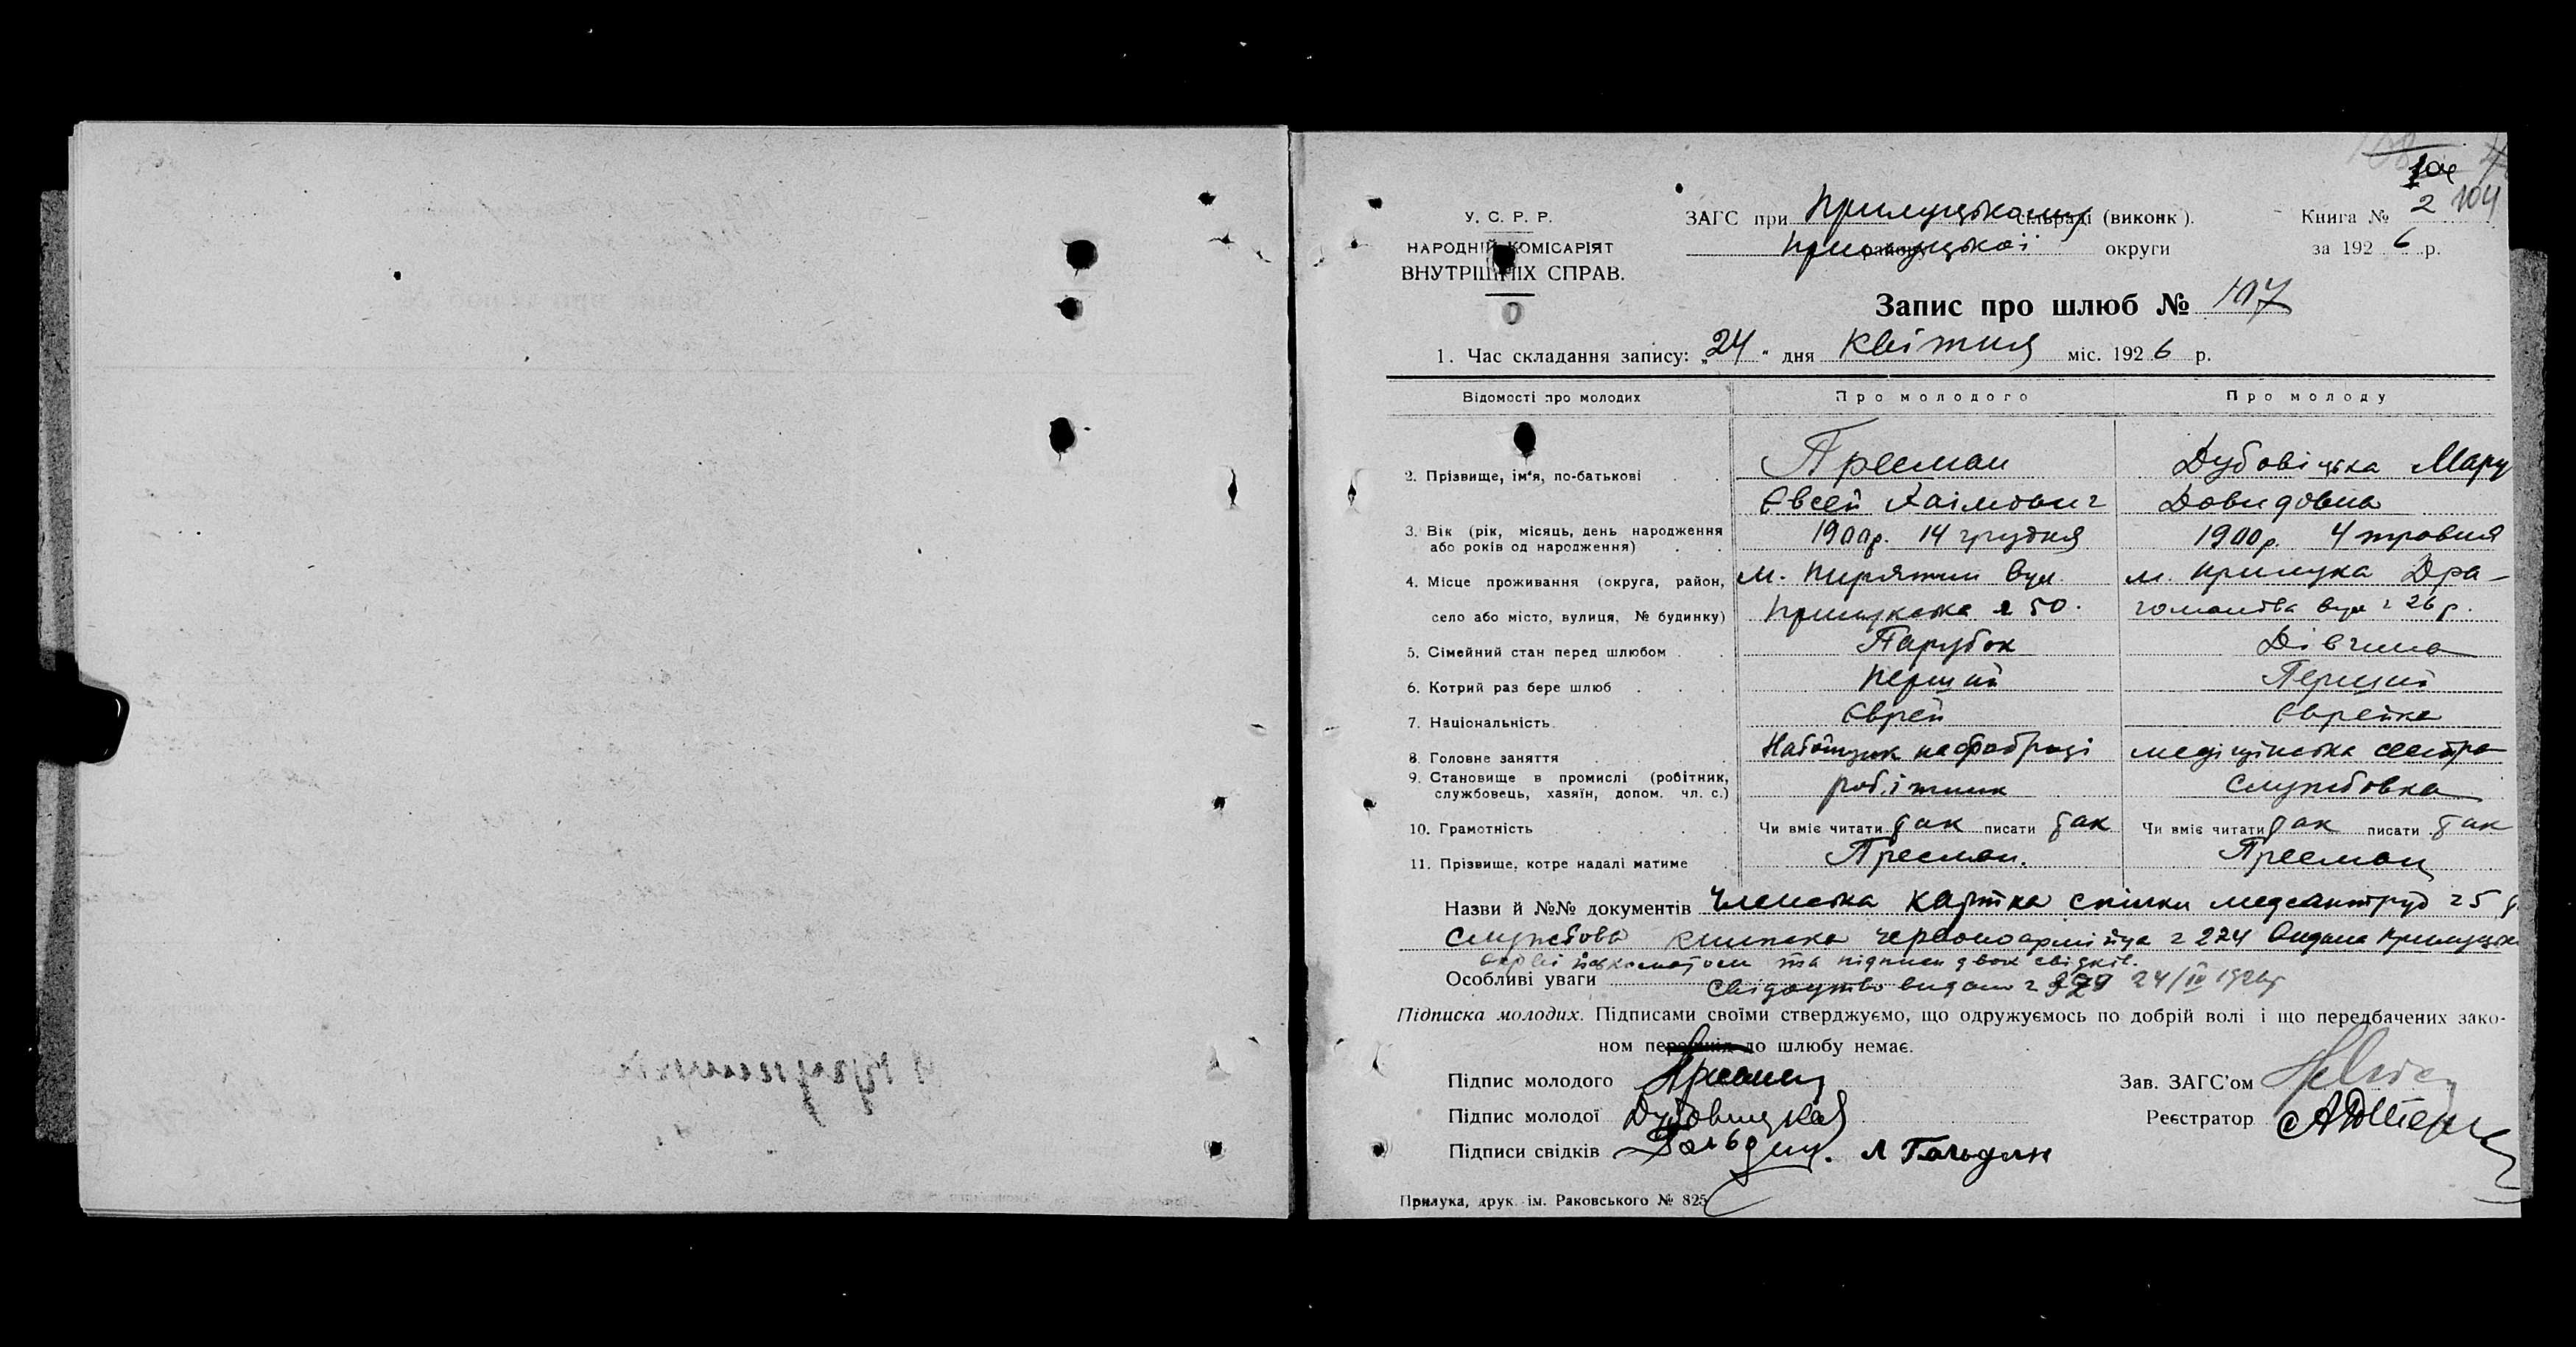 104
2 104
У. С. Р. Р. ЗАГС при Прилуцькому сільраді (виконк). Книга № 2
НАРОДНІЙ КОМІСАРІЯТ Прилуцької округи за 1926 р.
ВНУТРІШНІХ СПРАВ.
Запис про шлюб № 107
1. Час складання запису: „24“ дня квітня міс. 1926 р.
Відомості про молодих Про молодого Про молоду
2. Прізвище, ім'я, по-батькові Пресман Дубовіцька Мару
Євсей Хаімович Довидовна
3. Вік (рік, місяць, день народження 1900р. 14 грудня 1900р. 4 травня
або років од народження)
4. Місце проживання (округа, район, м. Пирятин вул. м. Прилука Дра-
село або місто, вулиця, № будинку) Прилукська 50. гоманова вул 26
5. Сімейний стан перед шлюбом Парубок Дівчина
6. Котрий раз бере шлюб Перший Перший
7. Національність Єврей Єврейка
8. Головне заняття на фабриці медіцінська сестра
9. Становище в промислі (робітник, робітник службовка
службовець, хазяїн, допом. чл. с.)
10. Грамотність Чи вміє читати так писати так Чи вміє читати так писати так
11. Прізвище, котре надалі матиме Пресман. Пресман
Назви й №№ документів Членська картка спілки медсантруд 5
службова книжка червоноармійця 224 видана
та підписи двох свідків.
Особливі уваги Свідоцтво видано 24/IV 1926р
Підписка молодих. Підписами своїми стверджуємо, що одружуємось по добрій волі і що передбачених зако-
ном перешкід до шлюбу немає.
Підпис молодого Пресман Зав. ЗАГС'ом
Підпис молодої Дубовицкая Реєстратор
Підписи свідків Гольдин. Л Гольдин
Прилука, друк. ім. Раковського № 825